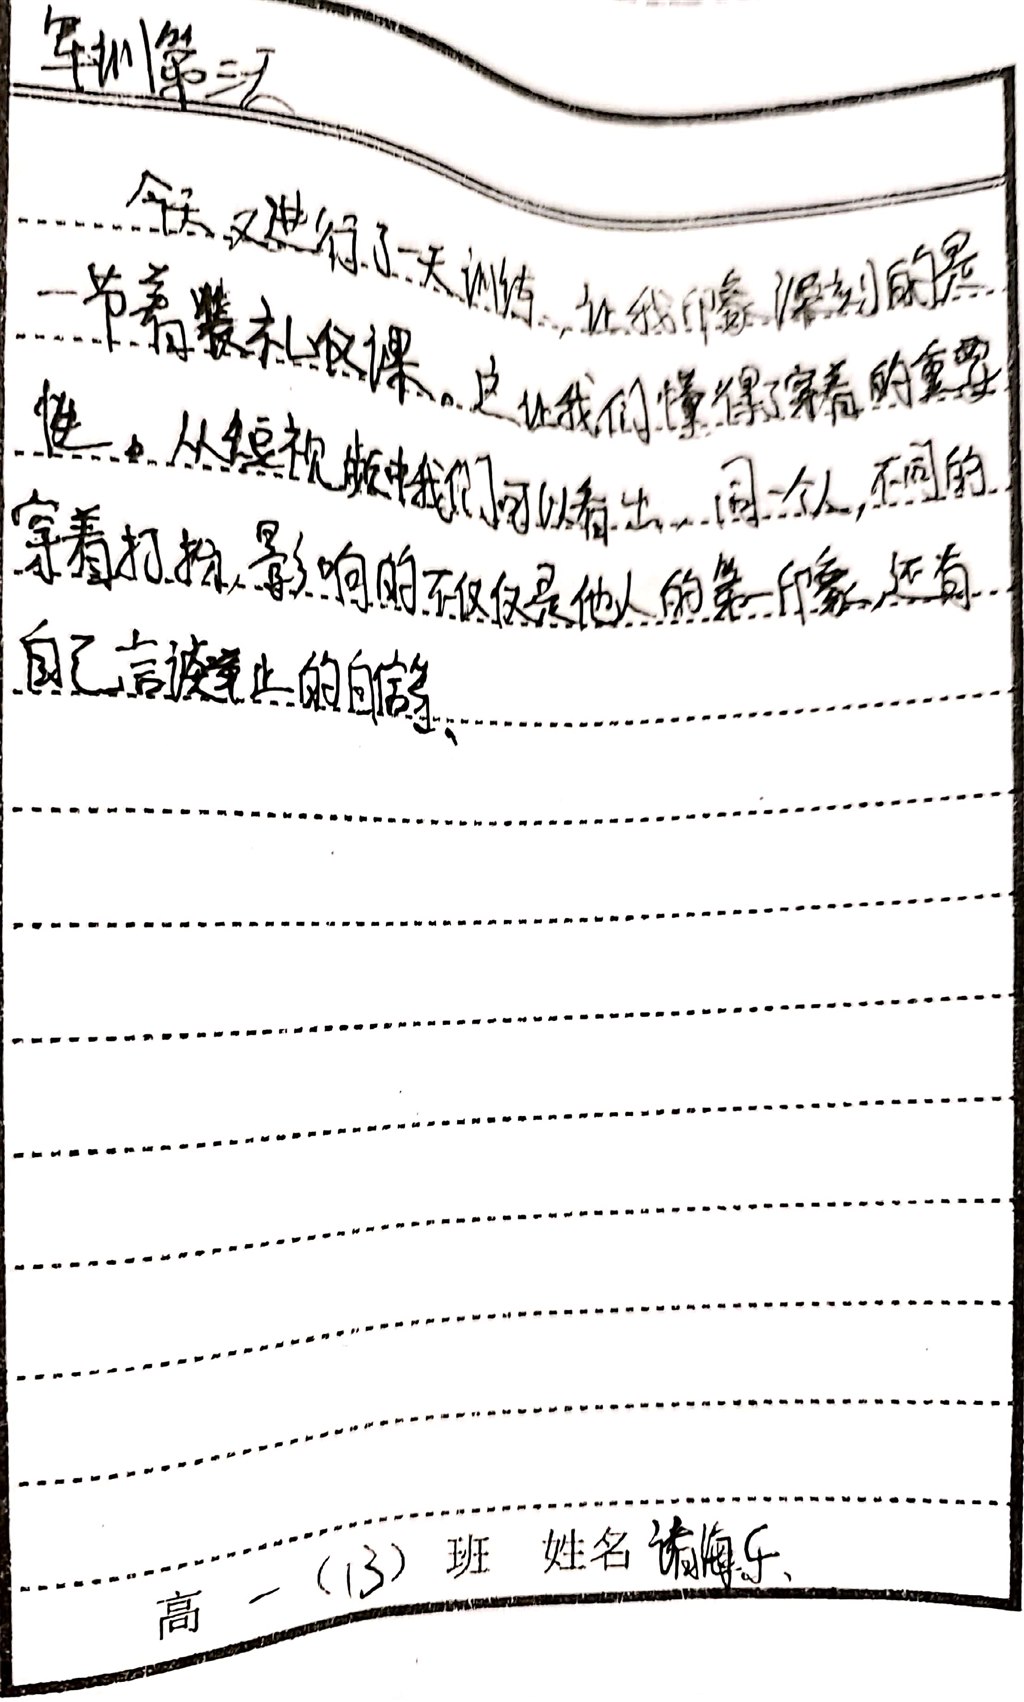 军训第三天
今天又进行了一天训练,让我印象深刻的是
一节着装礼仪课。这让我们懂得了穿着的重要
性。从短视频中我们可以看出,同一个人,不同的
穿着打扮,影响的不仅仅是他人的第一印象,还有
自己言谈举止的自信等、
高一(13)班 姓名 诸海乐、